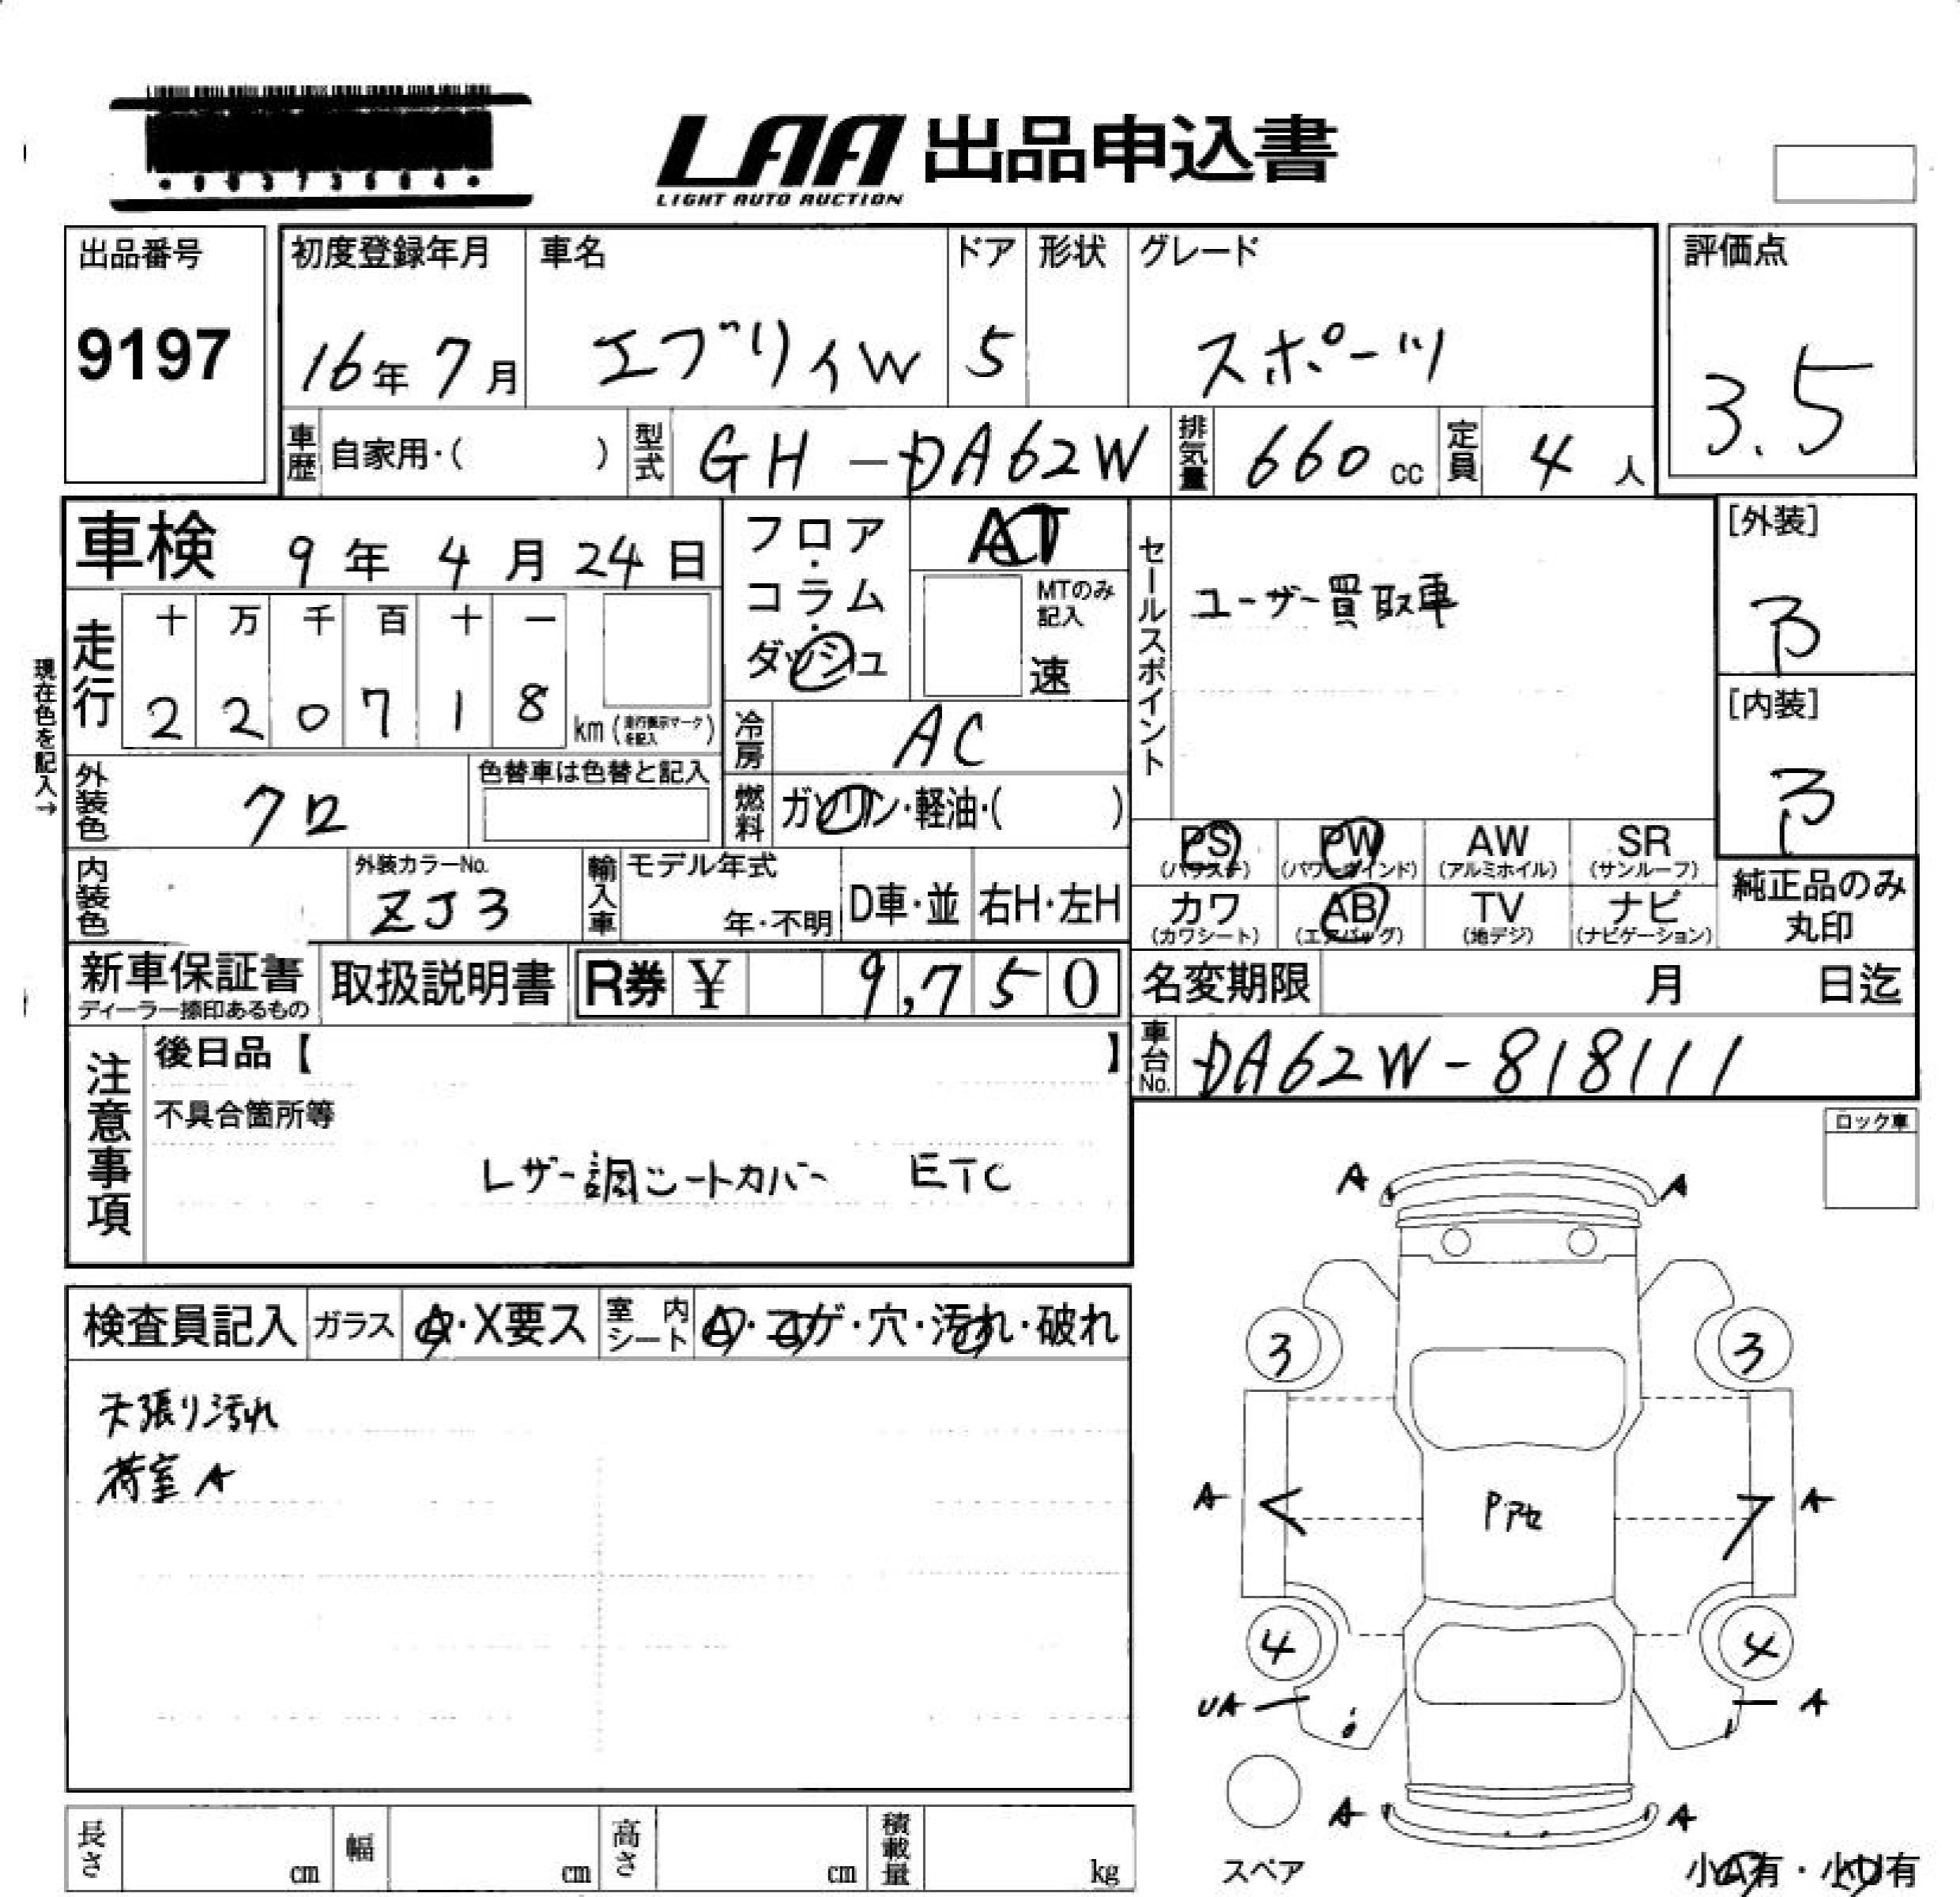 LAA 出品申込書
LIGHT AUTO AUCTION
出品番号
9197
初度登録年月
16年 7月
車名
エブリィW
ドア
5
形状
グレード
スポーツ
評価点
3.5
車歴 自家用・( )
型式 GH-DA62W
排気量 660cc
定員 4人
車検 9年 4月 24日
フロア・コラム・ダッシュ
AT
MTのみ記入
速
セールスポイント
ユーザー買取車
[外装]
[内装]
現在色を記入→
走行
十 万 千 百 十 一
2 2 0 7 1 8 km (走行表示マークを記入)
冷房 AC
外装色 クロ
色替車は色替と記入
燃料 ガソリン・軽油・( )
PS (パワステ)
PW (パワーウインド)
AW (アルミホイル)
SR (サンルーフ)
カワ (カワシート)
AB (エアバッグ)
TV (地デジ)
ナビ (ナビゲーション)
純正品のみ丸印
内装色
外装カラーNo.
ZJ3
輸入車
モデル年式
年・不明
D車・並
右H・左H
新車保証書
ディーラー捺印あるもの
取扱説明書
R券 ¥ 9,750
名変期限 月 日迄
車台No. DA62W-818111
注意事項
後日品【 】
不具合箇所等
レザー調シートカバー ETC
ロック車
検査員記入
ガラス A・X要ス
室内シート A・コゲ・穴・汚れ・破れ
天張り汚れ
荷室A
A A
3 3
A Pアセ A
4 4
UA A
A A
スペア
小A有・小U有
長さ cm
幅 cm
高さ cm
積載量 kg